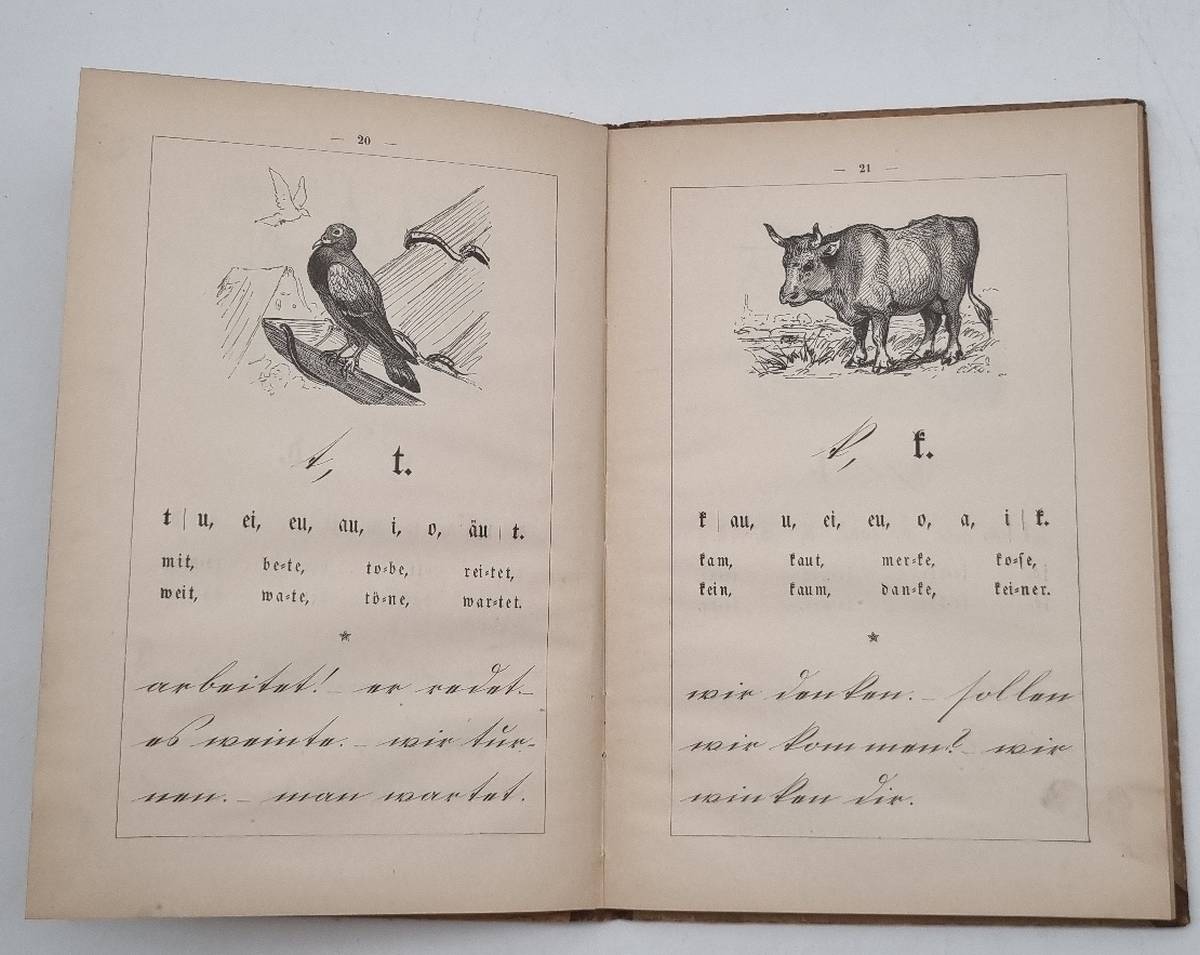 — 20 —
t, t.
t | u, ei, eu, au, i, o, äu | t.
mit, be⸗te, to⸗be, rei⸗tet,
weit, wa⸗te, tö⸗ne, war⸗tet.
*
arbeitet! – er redet. –
es weinte. – wir tur-
nen. – man wartet.
— 21 —
k, k.
k | au, u, ei, eu, o, a, i | k.
kam, kaut, mer⸗ke, ko⸗se,
kein, kaum, dan⸗ke, kei⸗ner.
*
wir denken. – sollen
wir kommen? – wir
winken dir.